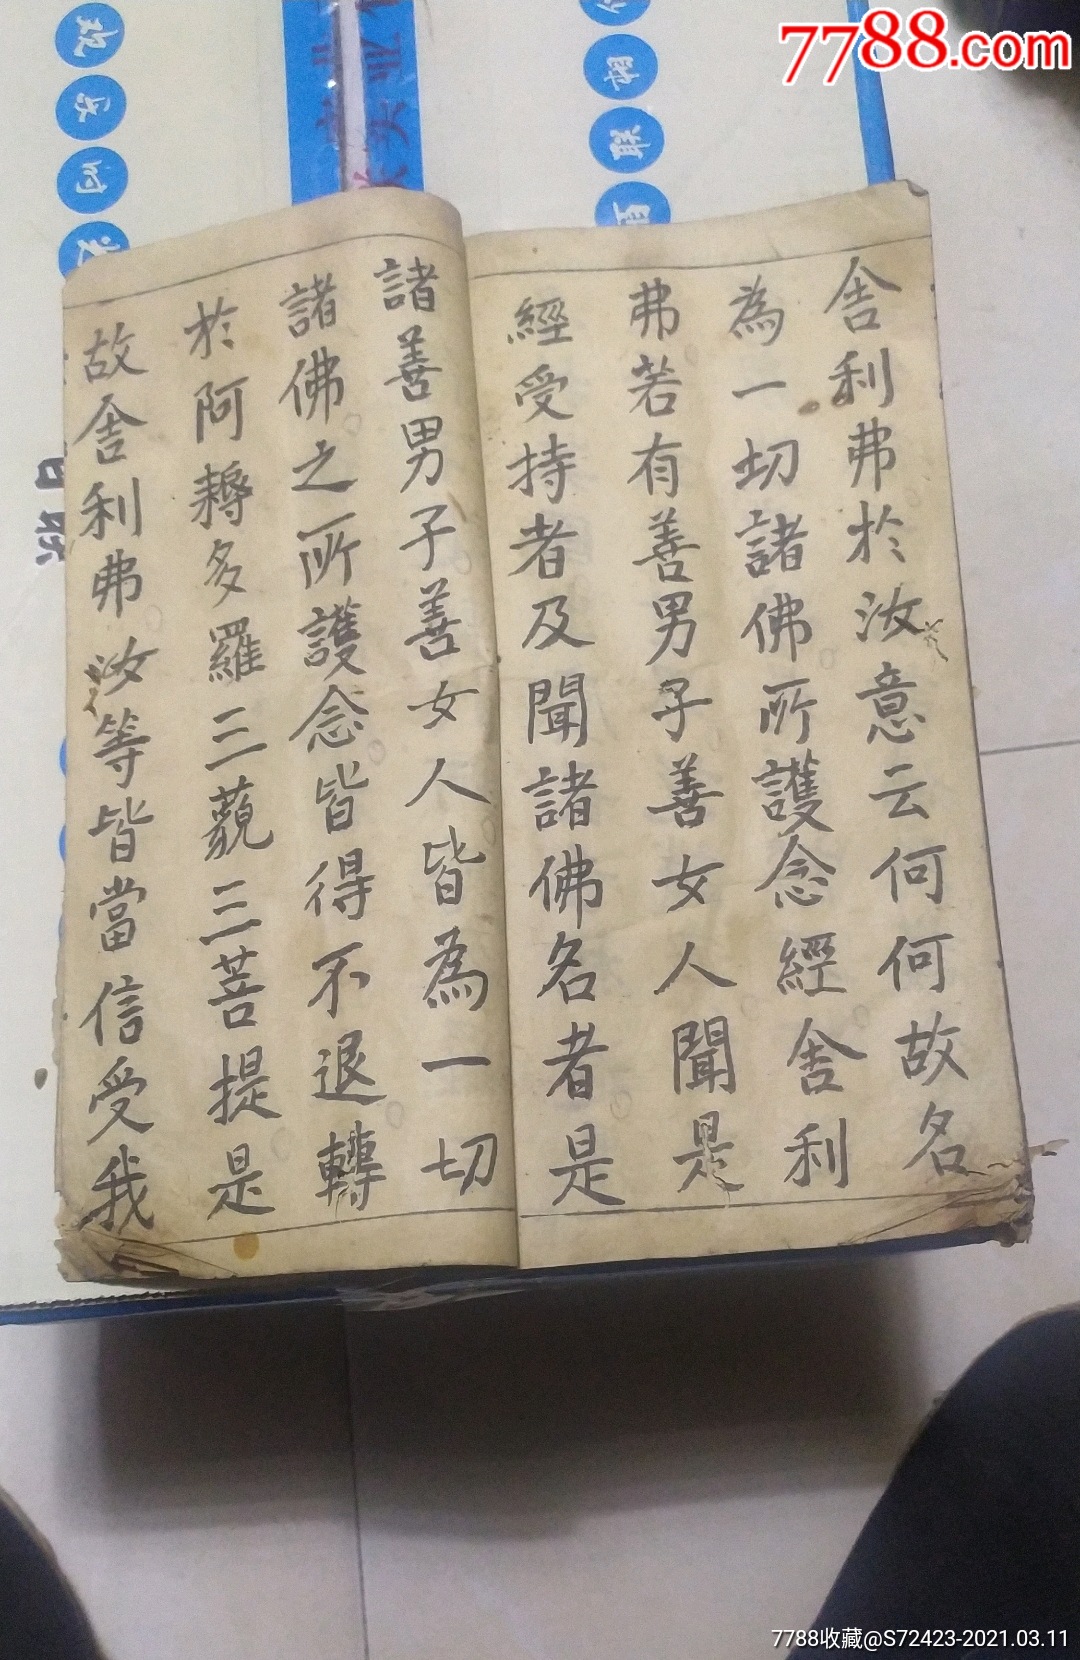 7788.com
舍利弗於汝意云何何故名
為一切諸佛所護念經舍利
弗若有善男子善女人聞是
經受持者及聞諸佛名者是
諸善男子善女人皆為一切
諸佛之所護念皆得不退轉
於阿耨多羅三藐三菩提是
故舍利弗汝等皆當信受我
7788收藏@S72423-2021.03.11